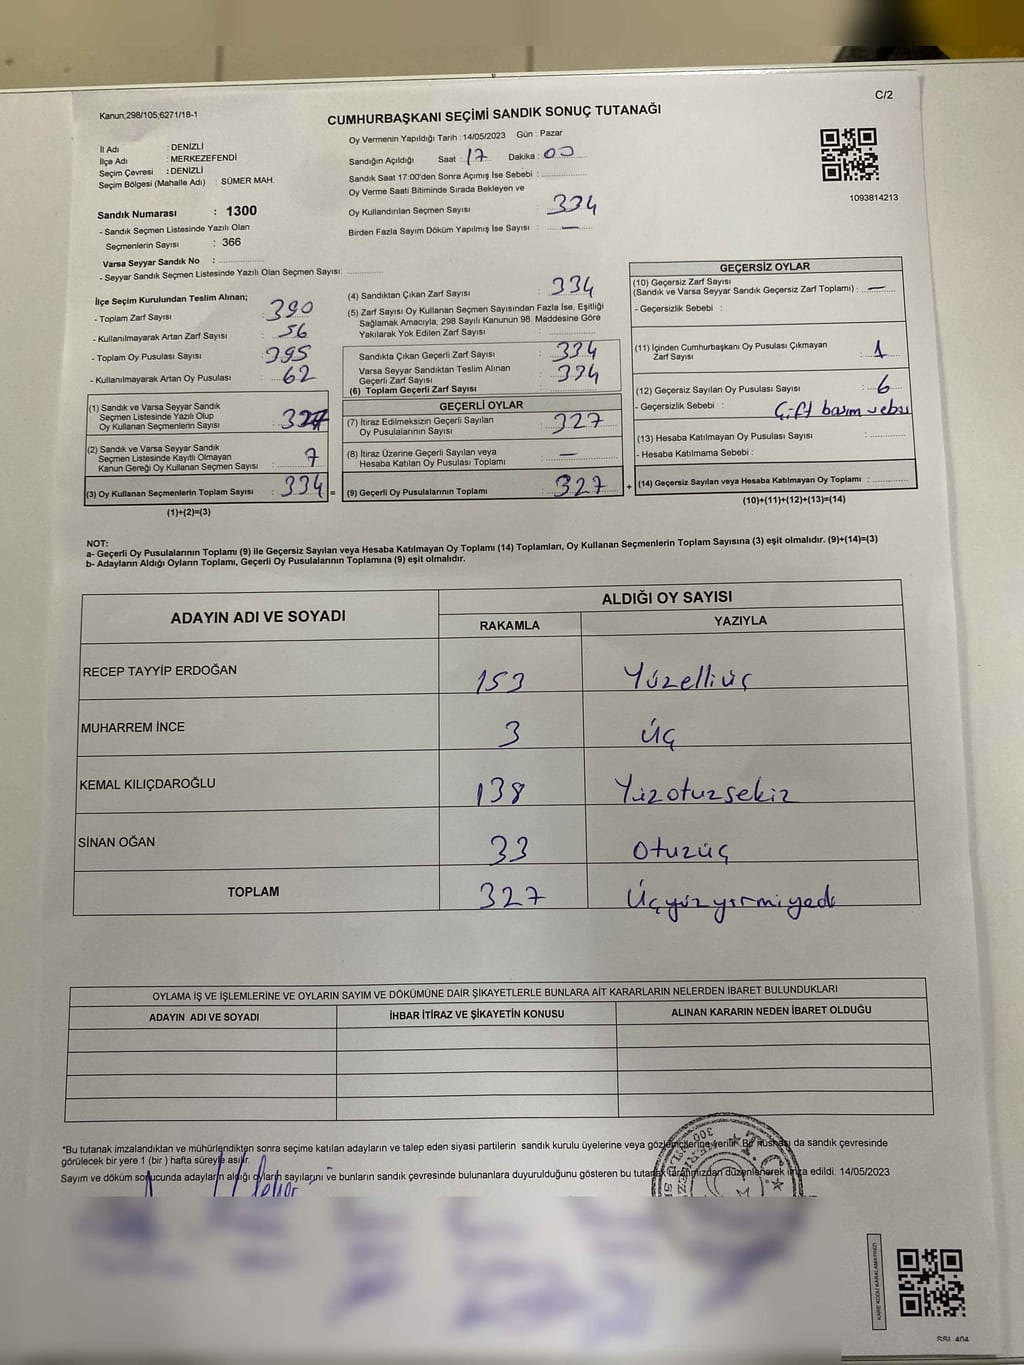 C/2
Kanun;298/105;6271/18-1
CUMHURBAŞKANI SEÇİMİ SANDIK SONUÇ TUTANAĞI
İl Adı : DENİZLİ
İlçe Adı : MERKEZEFENDİ
Seçim Çevresi : DENİZLİ
Seçim Bölgesi (Mahalle Adı) : SÜMER MAH.
Sandık Numarası : 1300
- Sandık Seçmen Listesinde Yazılı Olan
Seçmenlerin Sayısı : 366
Varsa Seyyar Sandık No :
- Seyyar Sandık Seçmen Listesinde Yazılı Olan Seçmen Sayısı:
Oy Vermenin Yapıldığı Tarih : 14/05/2023 Gün : Pazar
Sandığın Açıldığı Saat : 17 Dakika : 00
Sandık Saat 17:00'den Sonra Açımış İse Sebebi :
Oy Verme Saati Bitiminde Sırada Bekleyen ve
Oy Kullandırılan Seçmen Sayısı : 334
Birden Fazla Sayım Döküm Yapılmış İse Sayısı : —
1093814213
İlçe Seçim Kurulundan Teslim Alınan;
- Toplam Zarf Sayısı : 390
- Kullanılmayarak Artan Zarf Sayısı : 56
- Toplam Oy Pusulası Sayısı : 395
- Kullanılmayarak Artan Oy Pusulası : 62
(1) Sandık ve Varsa Seyyar Sandık
Seçmen Listesinde Yazılı Olup
Oy Kullanan Seçmenlerin Sayısı : 327
(2) Sandık ve Varsa Seyyar Sandık
Seçmen Listesinde Kayıtlı Olmayan
Kanun Gereği Oy Kullanan Seçmen Sayısı : 7
(3) Oy Kullanan Seçmenlerin Toplam Sayısı : 334 =
(1)+(2)=(3)
(4) Sandıktan Çıkan Zarf Sayısı : 334
(5) Zarf Sayısı Oy Kullanan Seçmen Sayısından Fazla İse, Eşitliği
Sağlamak Amacıyla; 298 Sayılı Kanunun 98. Maddesine Göre
Yakılarak Yok Edilen Zarf Sayısı :
Sandıkta Çıkan Geçerli Zarf Sayısı : 334
Varsa Seyyar Sandıktan Teslim Alınan
Geçerli Zarf Sayısı : 334
(6) Toplam Geçerli Zarf Sayısı :
GEÇERLİ OYLAR
(7) İtiraz Edilmeksizin Geçerli Sayılan
Oy Pusulalarının Sayısı : 327
(8) İtiraz Üzerine Geçerli Sayılan veya
Hesaba Katılan Oy Pusulası Toplamı : —
(9) Geçerli Oy Pusulalarının Toplamı : 327 +
GEÇERSİZ OYLAR
(10) Geçersiz Zarf Sayısı
(Sandık ve Varsa Seyyar Sandık Geçersiz Zarf Toplamı) : —
- Geçersizlik Sebebi :
(11) İçinden Cumhurbaşkanı Oy Pusulası Çıkmayan
Zarf Sayısı : 1
(12) Geçersiz Sayılan Oy Pusulası Sayısı : 6
- Geçersizlik Sebebi : Çift basım
(13) Hesaba Katılmayan Oy Pusulası Sayısı :
- Hesaba Katılmama Sebebi :
(14) Geçersiz Sayılan veya Hesaba Katılmayan Oy Toplamı :
(10)+(11)+(12)+(13)=(14)
NOT:
a- Geçerli Oy Pusulalarının Toplamı (9) ile Geçersiz Sayılan veya Hesaba Katılmayan Oy Toplamı (14) Toplamları, Oy Kullanan Seçmenlerin Toplam Sayısına (3) eşit olmalıdır. (9)+(14)=(3)
b- Adayların Aldığı Oyların Toplamı, Geçerli Oy Pusulalarının Toplamına (9) eşit olmalıdır.
ADAYIN ADI VE SOYADI ALDIĞI OY SAYISI
RAKAMLA YAZIYLA
RECEP TAYYİP ERDOĞAN 153 Yüzelliüç
MUHARREM İNCE 3 Üç
KEMAL KILIÇDAROĞLU 138 Yüzotuzsekiz
SİNAN OĞAN 33 Otuzüç
TOPLAM 327 Üçyüzyirmiyedi
OYLAMA İŞ VE İŞLEMLERİNE VE OYLARIN SAYIM VE DÖKÜMÜNE DAİR ŞİKAYETLERLE BUNLARA AİT KARARLARIN NELERDEN İBARET BULUNDUKLARI
ADAYIN ADI VE SOYADI İHBAR İTİRAZ VE ŞİKAYETİN KONUSU ALINAN KARARIN NEDEN İBARET OLDUĞU
*Bu tutanak imzalandıktan ve mühürlendikten sonra seçime katılan adayların ve talep eden siyasi partilerin sandık kurulu üyelerine veya gözlemcilerine verilir. Bir nüshası da sandık çevresinde
görülecek bir yere 1 (bir ) hafta süreyle asılır.
Sayım ve döküm sonucunda adayların aldığı oyların sayılarını ve bunların sandık çevresinde bulunanlara duyurulduğunu gösteren bu tutanak tarafımızdan düzenlenerek imza edildi. 14/05/2023
KARE KODU KARALAMAYINIZ!